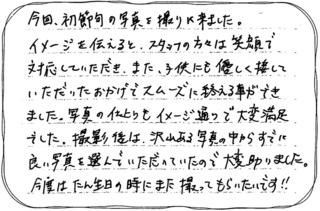 今回、初節句の写真を撮りに来ました。
イメージを伝えると、スタッフの方々は笑顔で
対応していただき、また、子供にも優しく接して
いただいたおかげでスムーズに終える事ができ
ました。写真の仕上りもイメージ通りで大変満足
でした。撮影後は、沢山ある写真の中からすでに
良い写真を選んでいただいていたので大変助りました。
今度はたん生日の時にまた撮ってもらいたいです!!